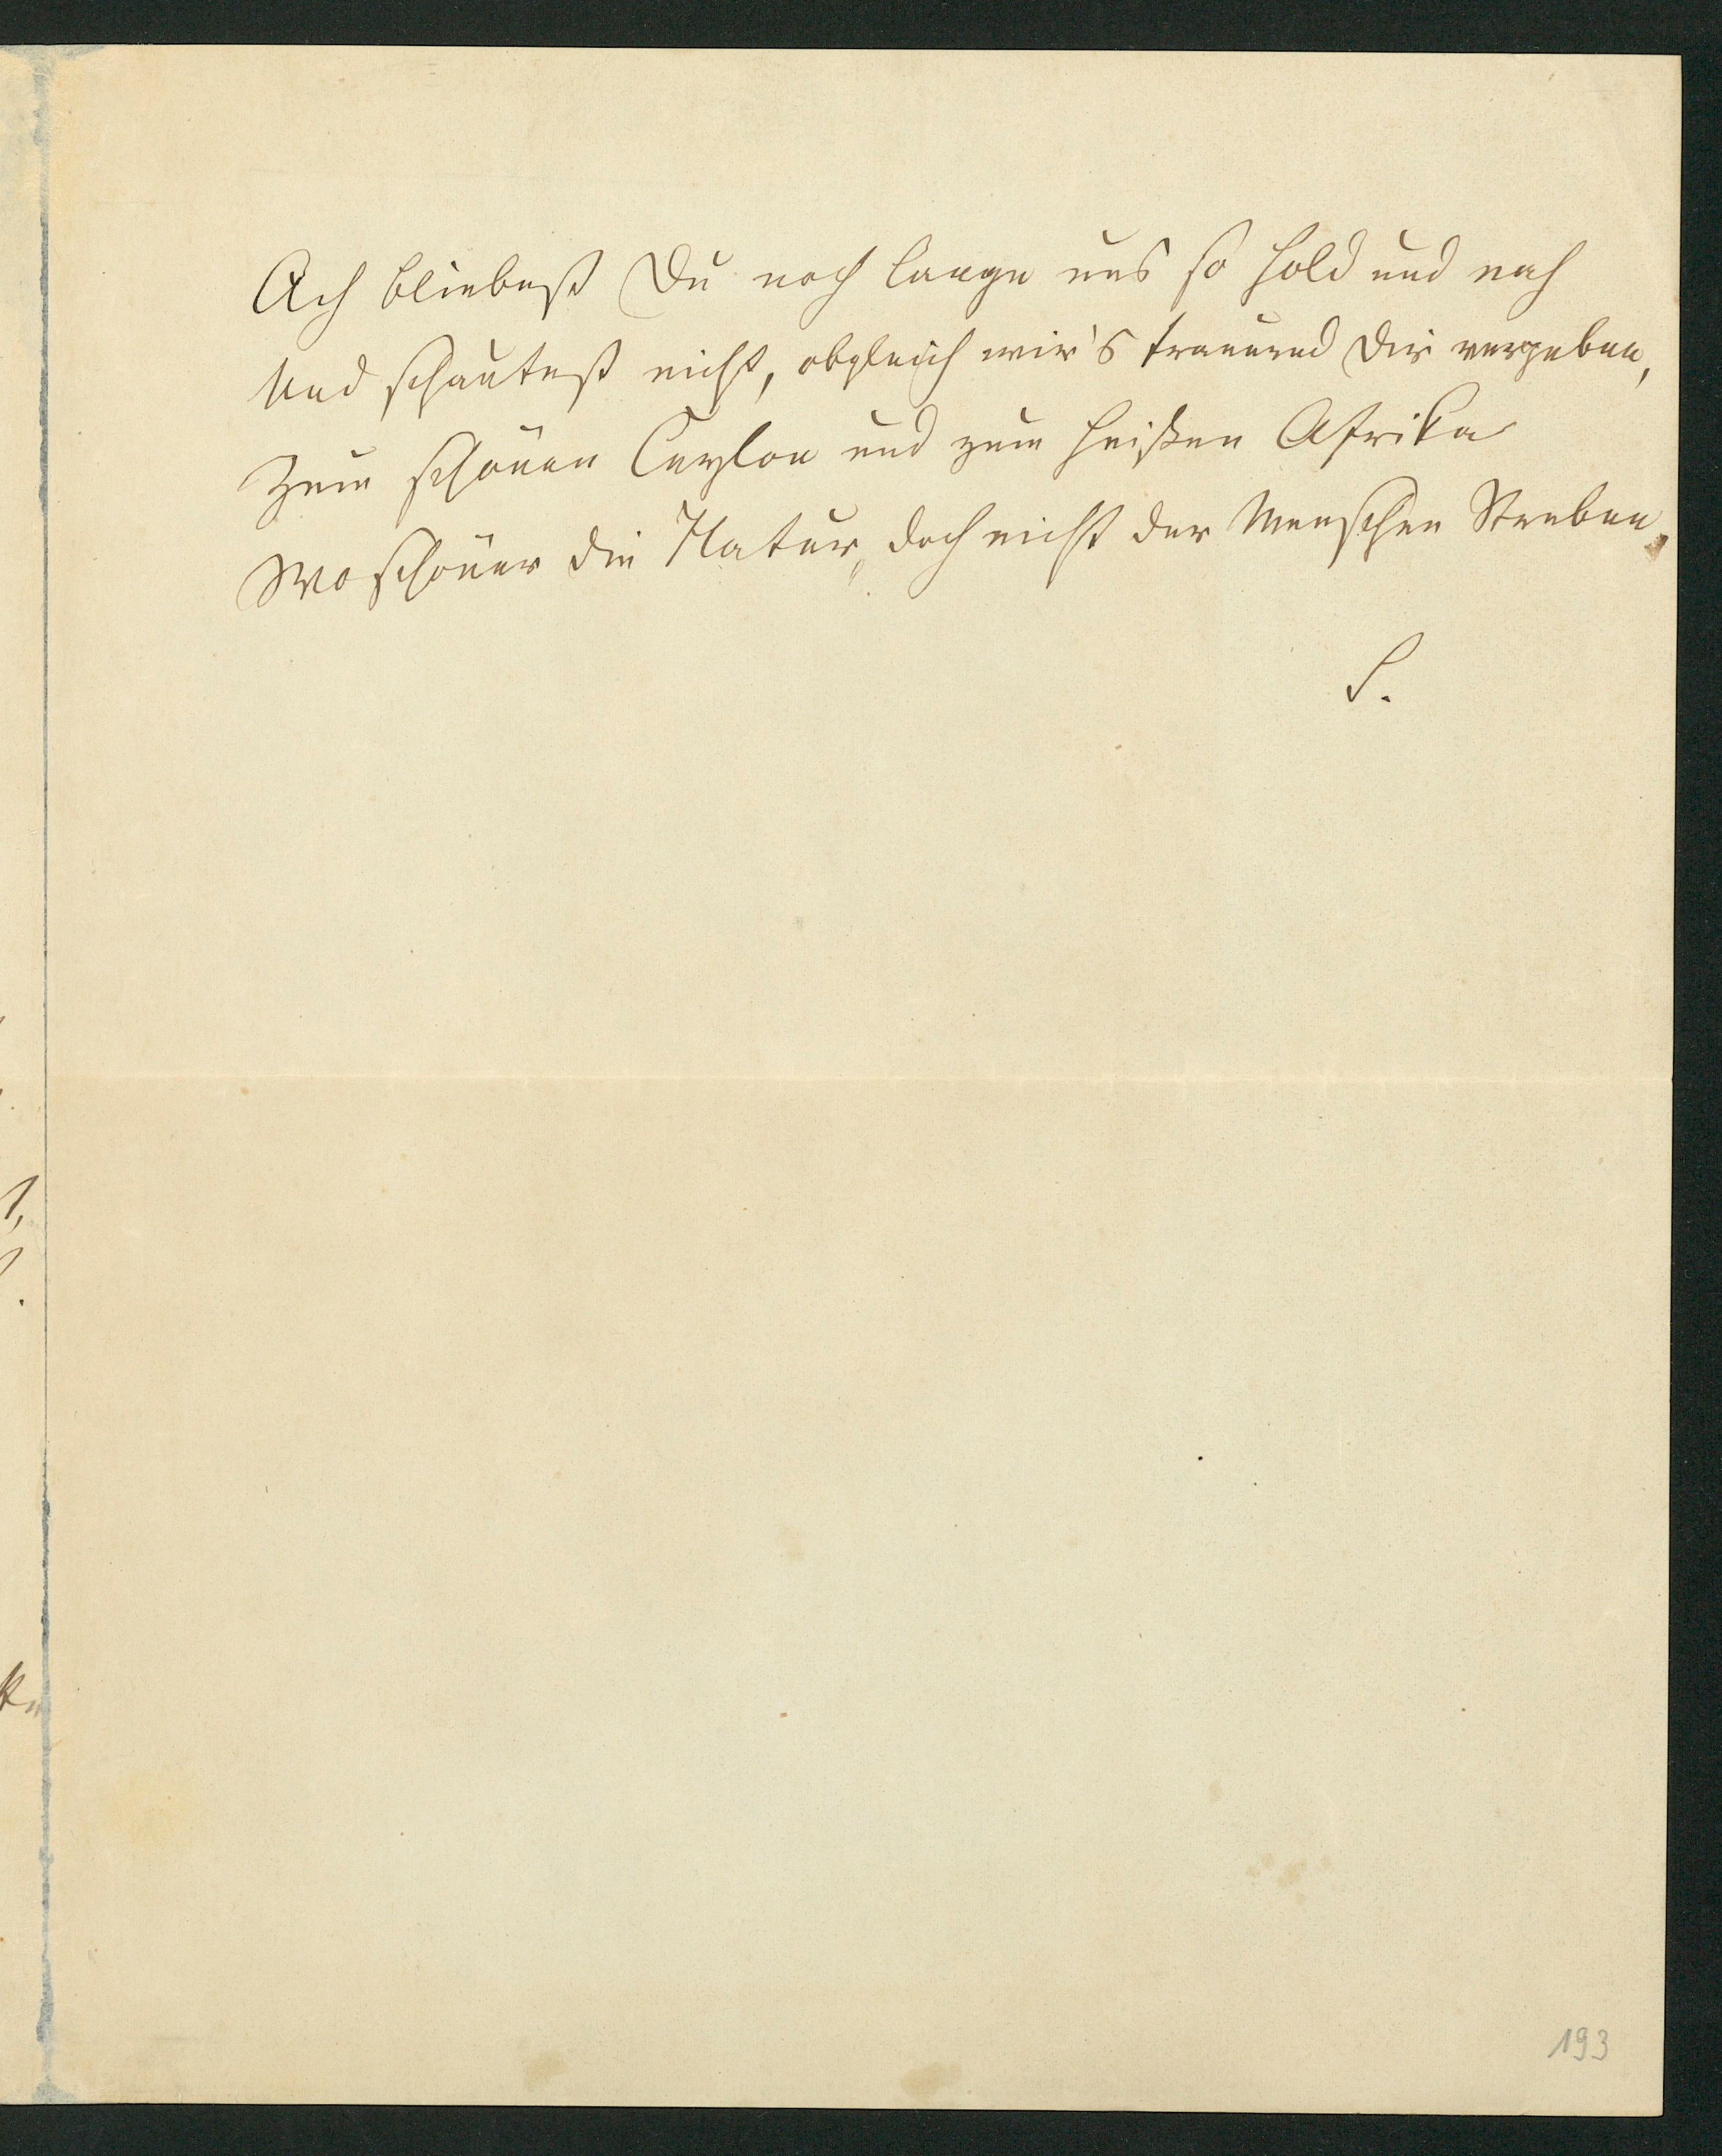 Ach bliebest Du noch lange uns so hold und nah
Und schautest nicht, obgleich wir's trauernd Dir vergeben,
Zum schönen Ceylon und zum heißen Afrika
Wo schöner die Natur, doch nicht der Menschen Streben.
S.
193